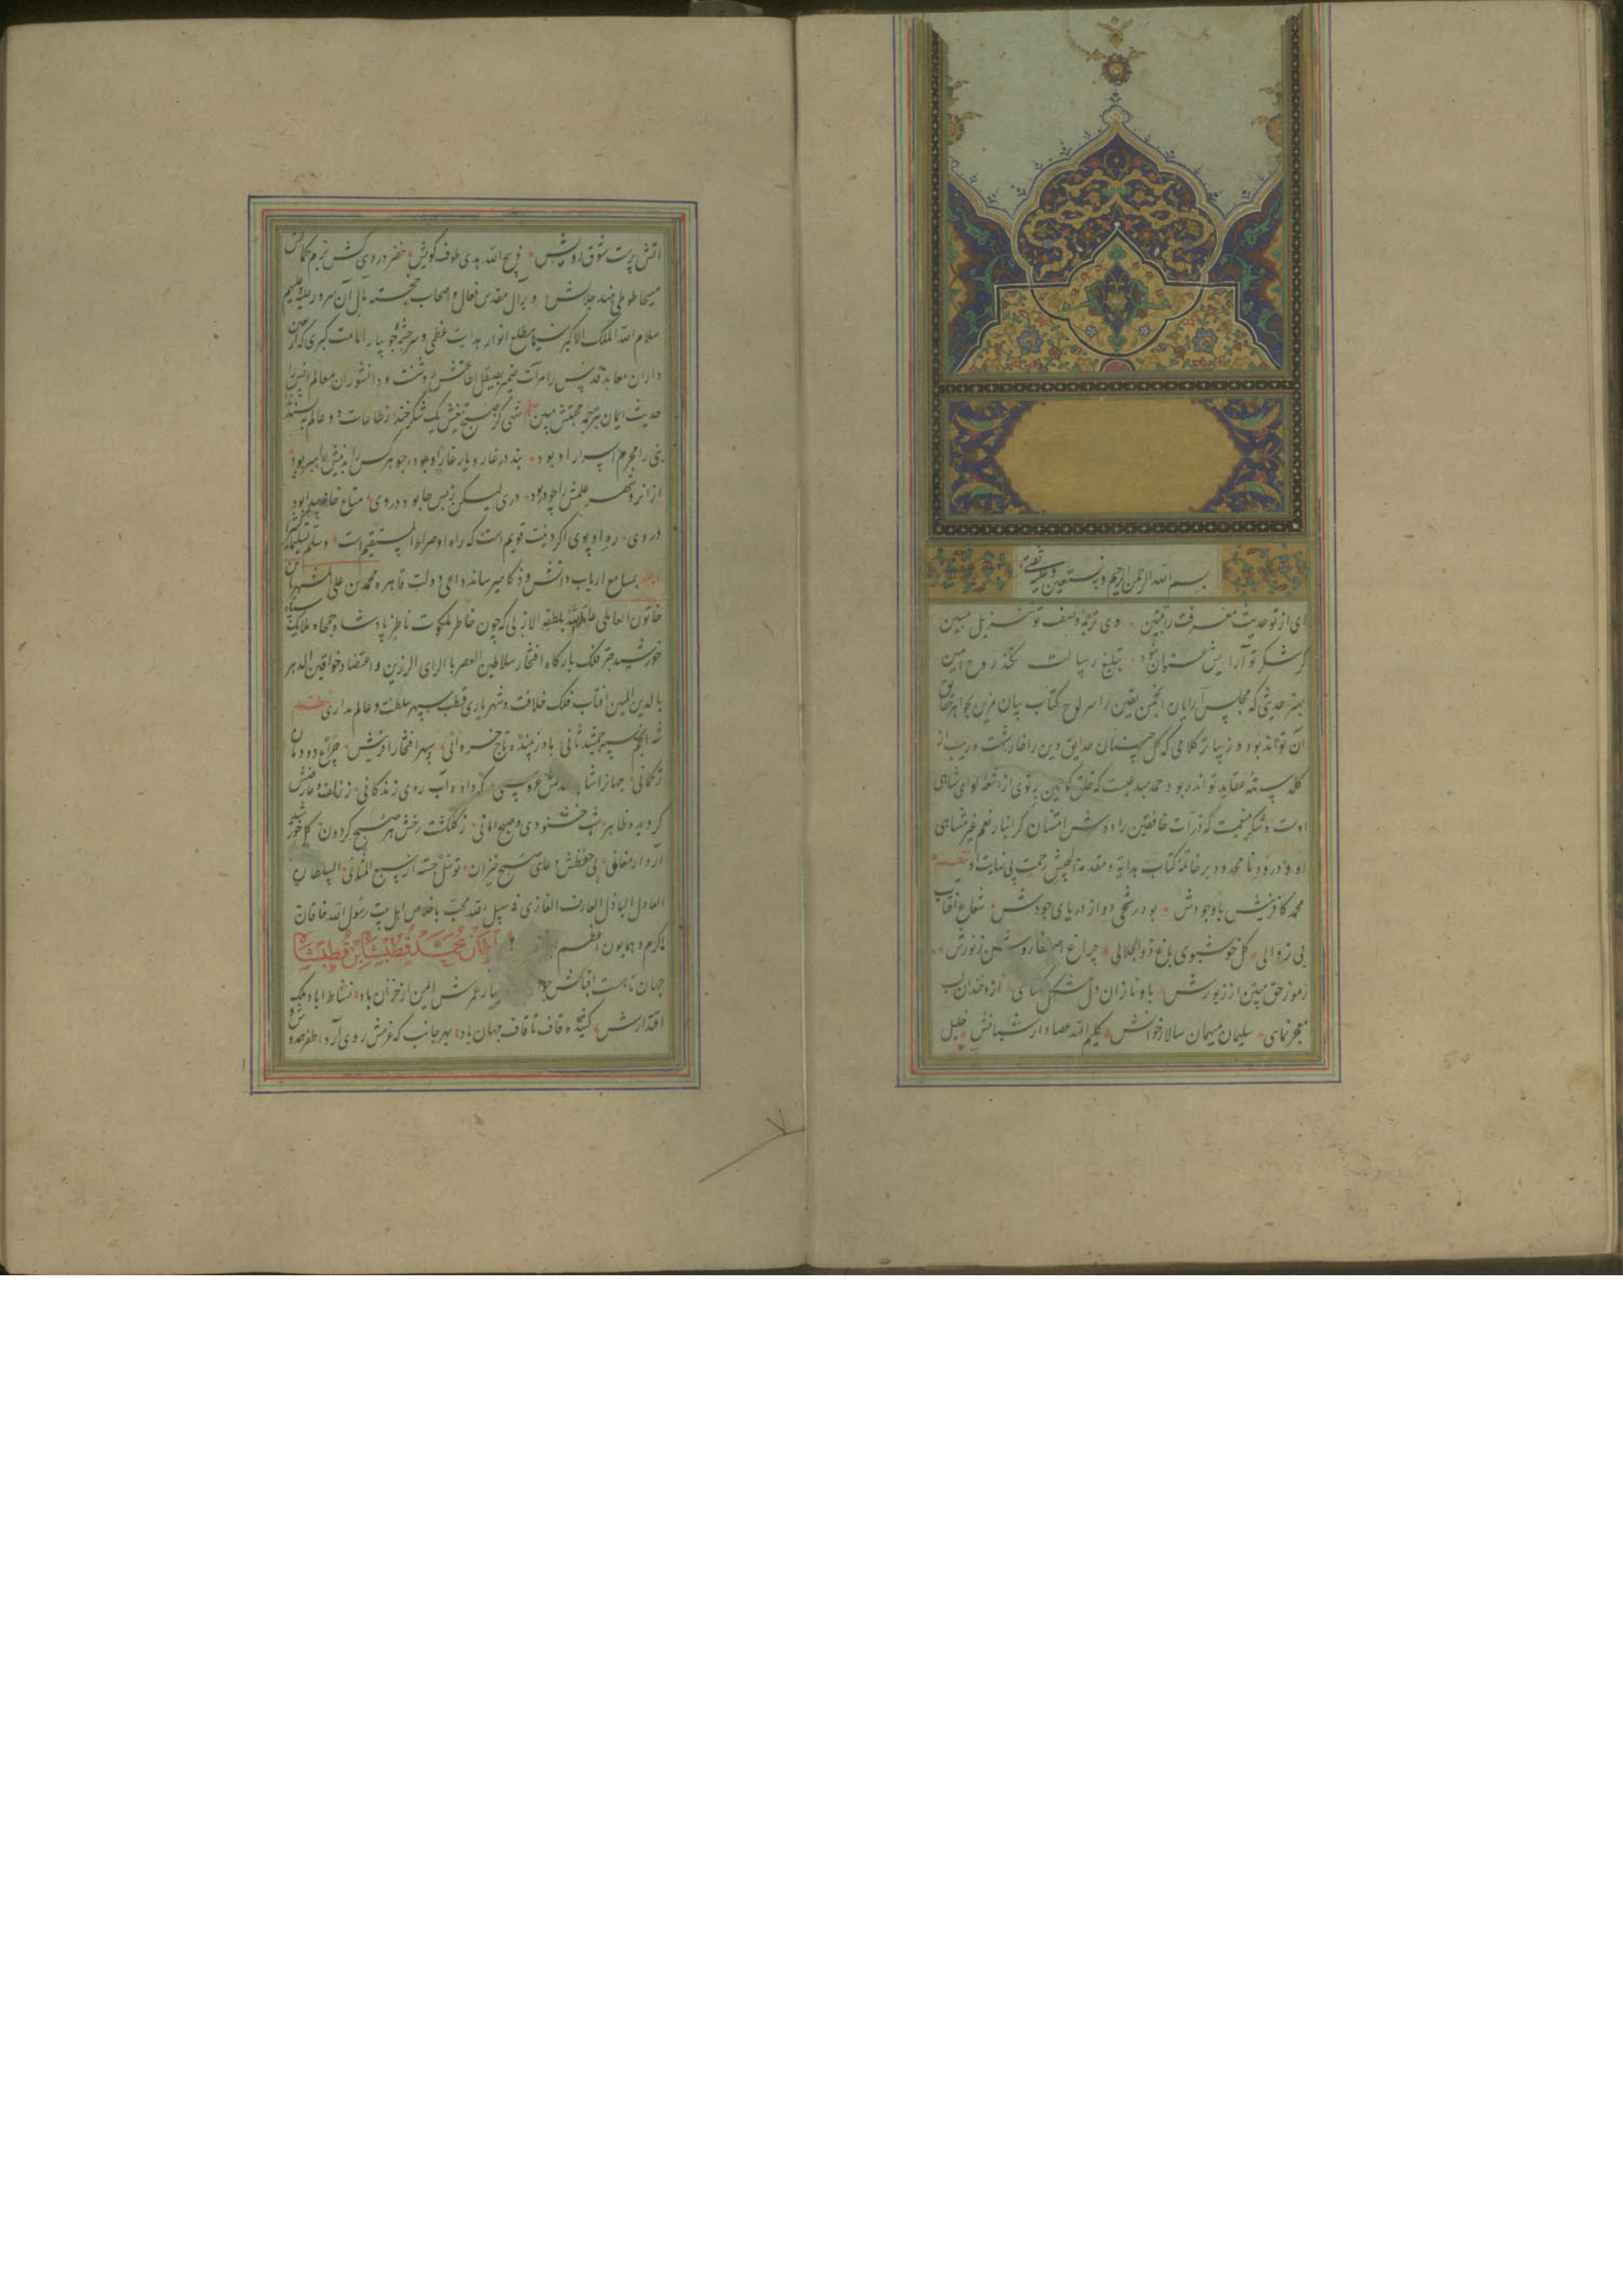 بسم الله الرحمن الرحیم وبه نستعین وعلیه
ای از تو حدیث معرفت را تبیین وی ترجمه وصف تو تنزیل مبین
گر شکر تو آرایش عنوان نبود تبلیغ رسالت نکند روح امین
بهتر حدیثی که مجلس آرایان انجمن یقین را سرلوح کتاب بیان مزین بجواهر حقایق
آن تواند بود و زیباتر کلامی که گل چینان حدایق دین را
گلدسته عقاید تواند بود حمد مبدعیست که خلق کونین پرتوی از اشعه لوای شاهی
اوست و شکر منعمیست که ذرات خافقین را دوش امتنان گرانبار نعم غیر متناهی
او و درود نامحدود بر خاتمه کتاب هدایة و مقدمة الجیش رحمت بی نهایت او
محمد کافرینش با وجودش بود رشحی دو از دریای جودش شعاع آفتاب
بی زوالی گل خوشبوی باغ ذوالجلالی چراغ
رموز حق مبین از زیورش باو نازان دل مشکل گشای ازو خندان لب
معجز نمای سلیمان میهمان سالار خوانش کلیم الله عصادار شبانش خلیل
آتش پرست شوق رویش ذبیح الله هدی طوف کویش خضر دردی کش بزم
مسیحا طوطی هند جلاش و بر آل مقدس فعال و اصحاب خجسته مآل آن سرور علیه وعلیهم
سلام الله الملک الاکبر سیما مطلع انوار هدایت عظمی و سرچشمه جویبار امامت کبری که
داران معابد قدس را مرآت ضمیر بصیقل اطاعتش روشنست و دانشوران معالم انس را
حدیث ایمان بترجمه محبتش مبین شهی کز صبح تیغش یک شکرخند ز طاعات دو عالم
نبی را محرم اسرار او بود نبد در غار و یار غار او بود چو هر کس را
از آنرو شهر علمش را چو در بود دری لیکن ز بس جا بود در وی متاع
در وی ره او پوی اگر دینت قویم است که راه او صراط المستقیم است وسلم تسلیما کثیرا
بمسامع ارباب دانش و ذکا میرساند داعی دولت قاهره محمد بن علی المشتهر بابن
خاتون العاملی بلطفه الازلی که چون خاطر ملکوت ناظر پادشاه جمجاه ملایک سپاه
خورشید چتر فلک بارگاه افتخار سلاطین العصر بالرای الرزین و اعتضاد خواقین الدهر
بالدین المبین آفتاب فلک خلافت و شهریاری قطب سپهر سلطنت و عالم مداری
شه انجم سپه جمشید ثانی باو زیبنده تاج خسروانی سپهر افتخار آفرینش چراغ دودمان
ترکمانی جهانرا عروسی که داده آب روی زندگانی ز زلف و عارضش
گردیده ظاهر شب خشنودی و صبح امانی ز گلگشت رخش هر صبح گردون گل خورشید
آرد ارمغانی پی حفظش دعای صبح خیزان توسل جسته از سبع المثانی السلطان
العادل الباذل العارف الغازی فی سبیل الله محب باخلاص اهل بیت رسول الله خاقان
اکرم و همایون اعظم محمد قطبشاه بن قطبشاه
جهان تا هست بهار عمرش ایمن از خزان باد نشاط آباد ملک
اقتدارش کشیده قاف تا قاف جهان باد بهر جانب که عزمش روی آرد ظفر